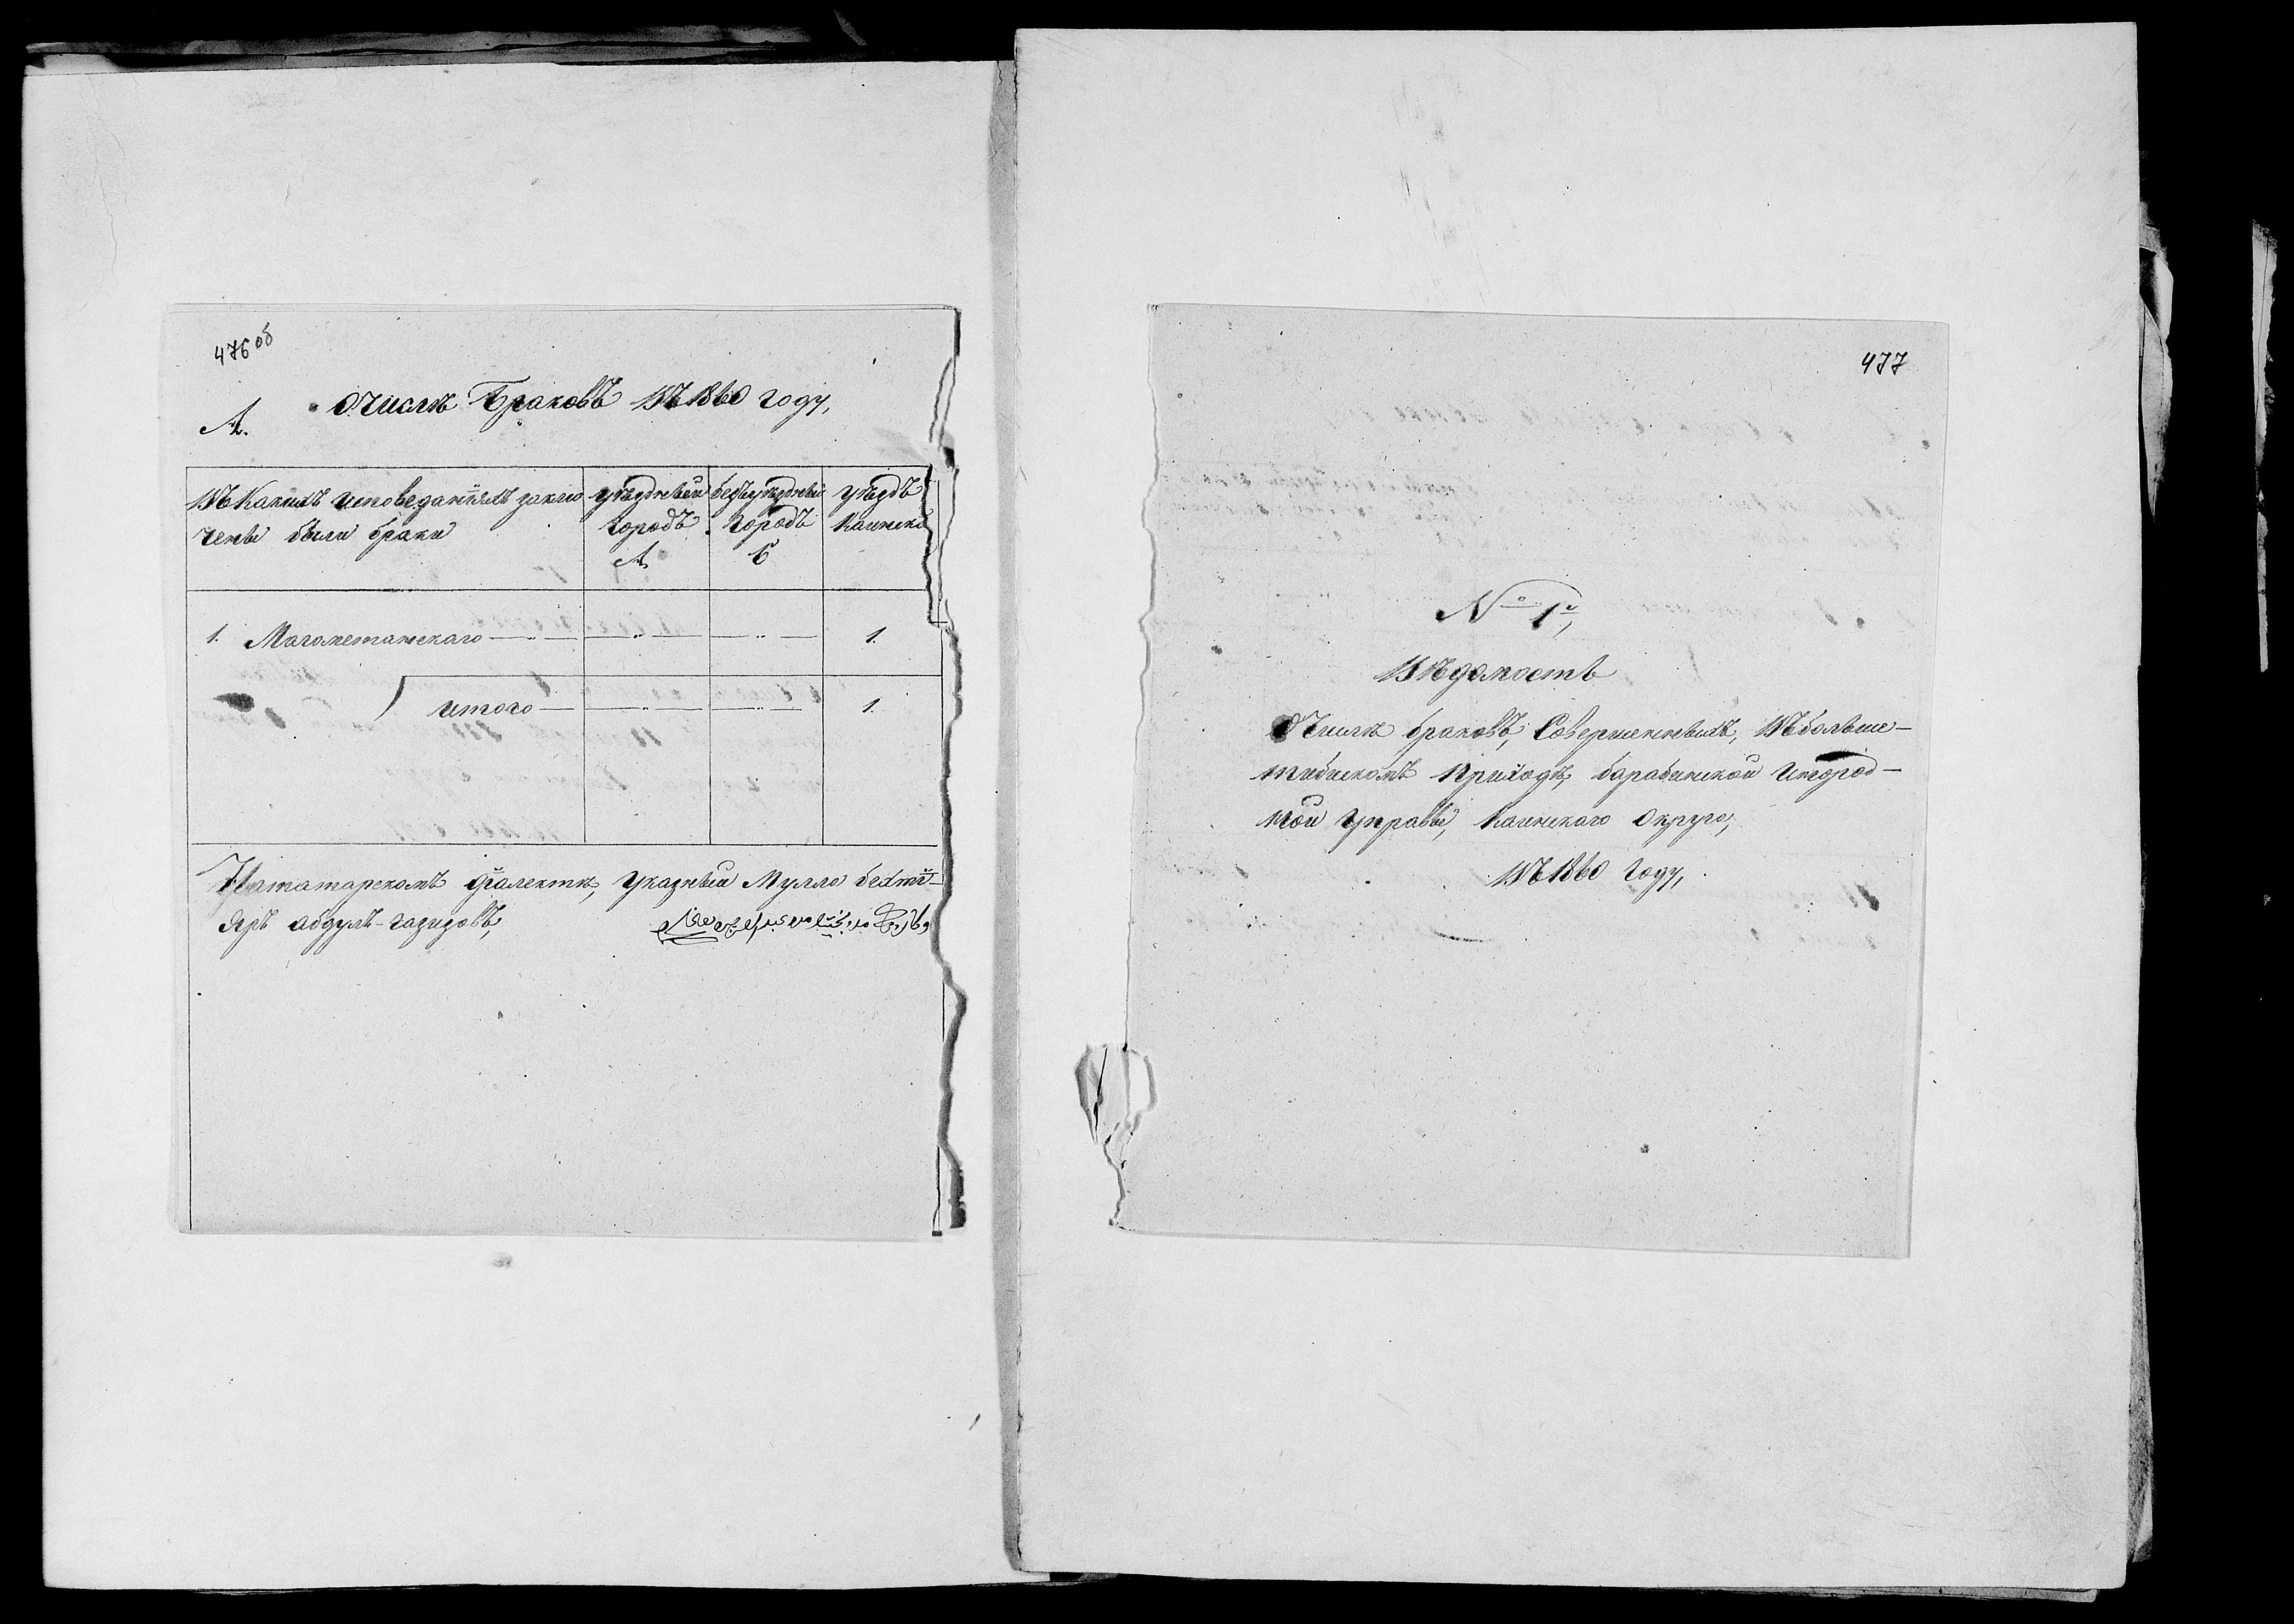 476 об
О числѣ Браковъ Въ 1860 году,
А.
Въ Какихъ исповеданіяхъ заклю
чены были браки
уѣздный
городъ
А
безъуѣздный
городъ
Б
уѣздъ
Каинскъ
1. Магометанскаго — „ — — „ — — „ — 1.
итого — — „ — — „ — 1.
На татарскомъ діалектѣ, Указный Мулло бехтій-
яръ абдулъ-газизовъ,
477
№ 1й,
Вѣдомость
О Числѣ браковъ, Совершенныхъ, Въ больше-
тибискомъ Приходѣ, барабинской Инород-
ной Управы, Каинскаго Округа,
Въ 1860 Году,